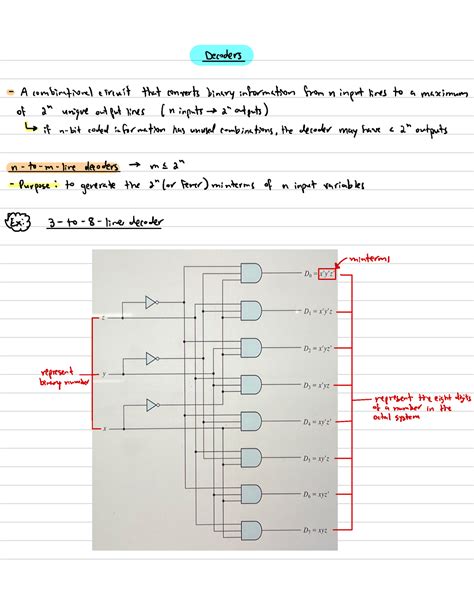 Decoders
- A combinational circuit that converts binary information from n input lines to a maximum
of 2ⁿ unique output lines (n inputs → 2ⁿ outputs)
↳ if n-bit coded information has unused combinations, the decoder may have < 2ⁿ outputs
n-to-m-line decoders → m ≤ 2ⁿ
- Purpose: to generate the 2ⁿ (or fewer) minterms of n input variables
Ex: 3-to-8-line decoder
minterms
D₀ = x'y'z'
D₁ = x'y'z
z
D₂ = x'yz'
represent
binary number
y
D₃ = x'yz
represent the eight digits
of a number in the
octal system
x
D₄ = xy'z'
D₅ = xy'z
D₆ = xyz'
D₇ = xyz